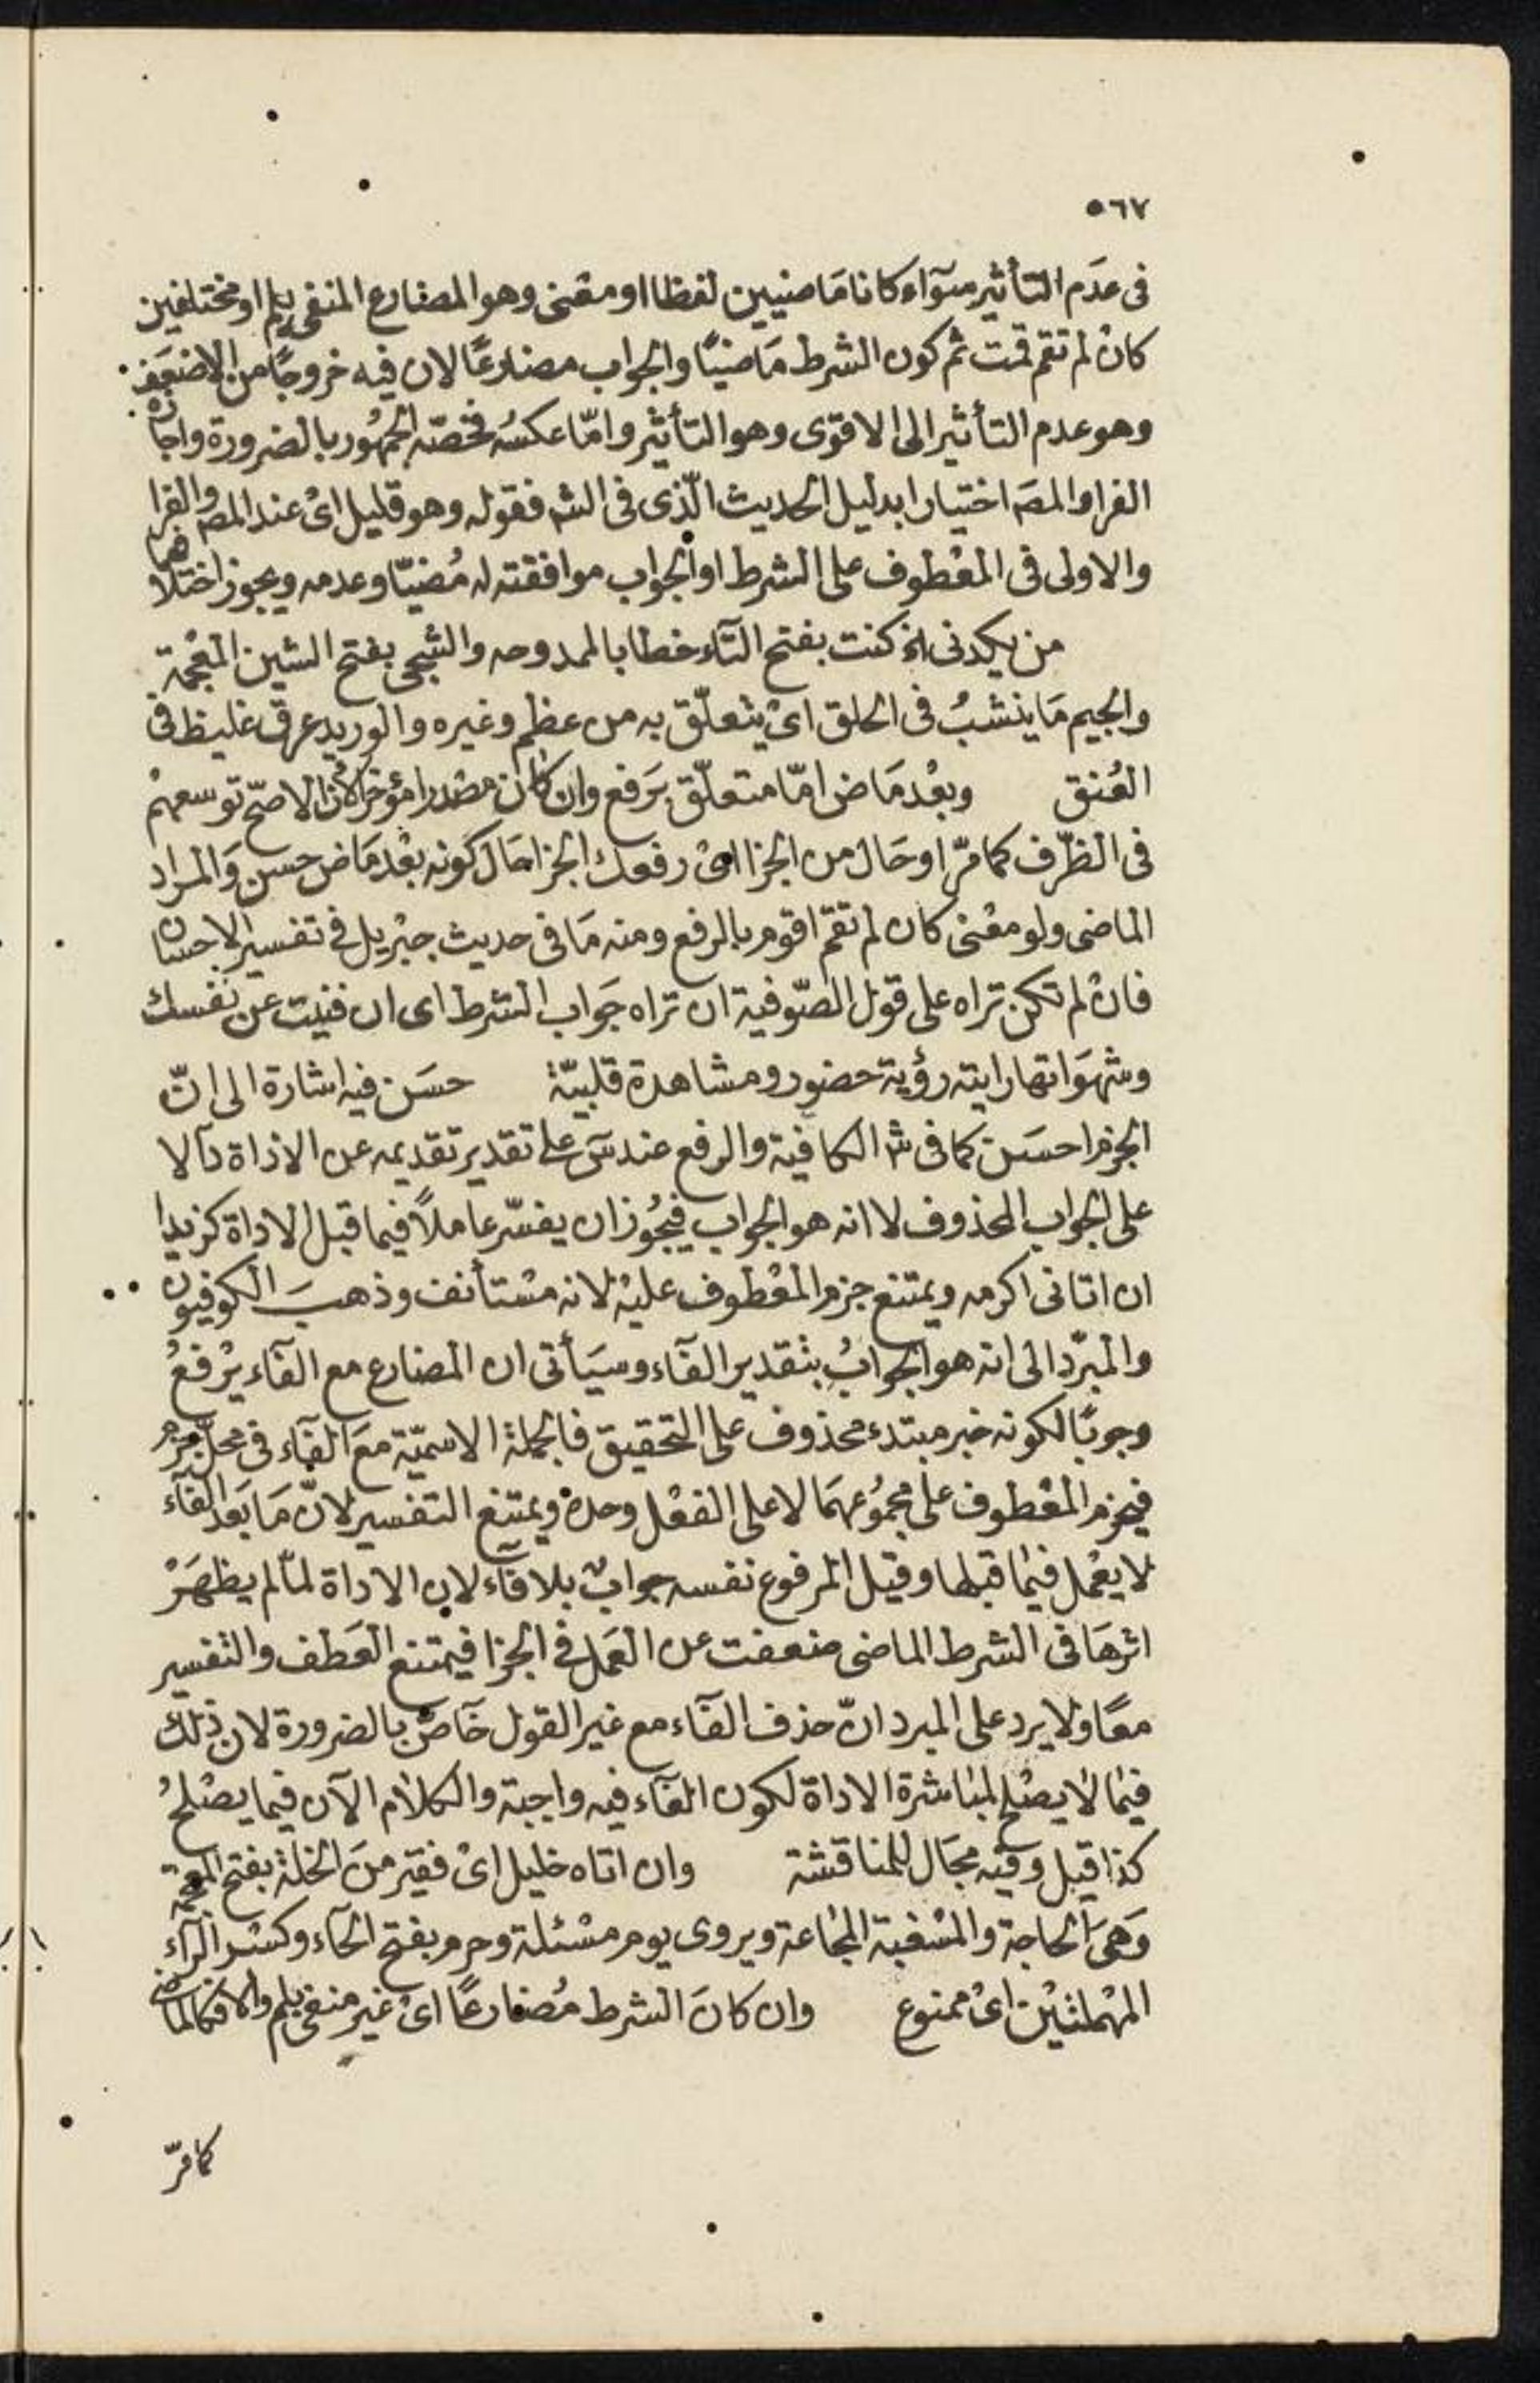 ٥٦٧
فى عدَم التأثير سوآء كانا مَاضيين لفظا او معْنى وهو المضارع المنفى بلم او مختلفين
كانْ لم تقم قمت ثم كون الشرط مَاضيًا والجواب مضارعًا لان فيه خروجًا من الاضعَف
وهو عدم التأثير الى الاقوى وهو التأثير وامّا عكسُه فخصّه الجمهُور بالضرورة واجازه
الفرا والمصَ اختيارا بدليل الحديث الّذى فى الشَ فقوله وهو قليل اىْ عند المصَ والفرا
والاولى فى المعْطوف على الشرط او الجواب موافقته له مُضيّا وعدمه ويجوز اختلافهما
من يكدنى الخ كنت بفتح التآء خطابا لممدوحه والشجى بفتح الشين المعْجمة
والجيم مَا ينشبُ فى الحلق اىْ يتعلّق به من عظم وغيره والوريد عرق غليظ فى
العُنق وبعْد مَاض امّا متعلّق بَرفع وان كان مصْدرا مؤخرا لأن الاصحّ توسعهمْ
فى الظرّف كما مرّ او حَال من الجزا اىْ رفعك الجزا حَال كونه بعْد مَاض حسن وَالمراد
الماضى ولو معْنى كان لم تقم اقوم بالرفع ومنه مَا فى حديث جبْريل فى تفسير الاحسان
فانْ لم تكن تراه على قول الصّوفية ان تراه جَواب الشرط اى ان فنيت عن نفسك
وشهوَاتها رايته رؤية حضور ومشاهدة قلبيّة حسَن فيه اشارة الى انّ
الجزم احسَن كما فى شَ الكافية والرفع عند سَ على تقدير تقديمه عن الاداة دآلا
على الجواب المحذوف لا انه هو الجواب فيجُوز ان يفسّر عاملاً فيما قبل الاداة كزيدا
ان اتانى اكرمه ويمتنع جزم المعْطوف عليْه لانه مسْتأنف وذهبَ الكوفيون
والمبرّد الى انه هو الجوابُ بتقدير الفآء وسيَأتى ان المضارع مع الفآء يرْفعُ
وجوبًا لكونه خبر مبتدء محذوف على التحقيق فالجملة الاسميّة معَ الفآء فى محلّ جزم
فيجزم المعْطوف على مجمُوعهمَا لا على الفعْل وحدهْ ويمتنع التفسير لانّ مَا بَعد الفآء
لا يعْمل فيْما قبْلها وقيل المرفوع نفسه جوابٌ بلا فآء لان الاداة لمّا لم يظهَرْ
اثرهَا فى الشرط الماضى ضعفت عن العَمل فى الجزا فيمتنع العَطف والتفسير
معًا ولا يرد على المبرد انّ حذف الفآء مع غير القول خآصّ بالضرورة لان ذلك
فيْما لا يصْلح لمبَاشرة الاداة لكون الفآء فيه واجبة والكلام الآن فيما يصْلحُ
كذا قيل وفيْه مجَال للمناقشة وان اتاه خليل اىْ فقير منَ الخلة بفتح المعجمة
وَهىَ الحاجة والمسْغبة المجَاعة ويروى يوم مسْئلة وحرم بفتح الحآء وكسْر الرآء
المهْملتيْن اىْ ممنوع وان كانَ الشرط مُضارعًا اىْ غير منفى بلم والا فكالماضى
كما مرّ